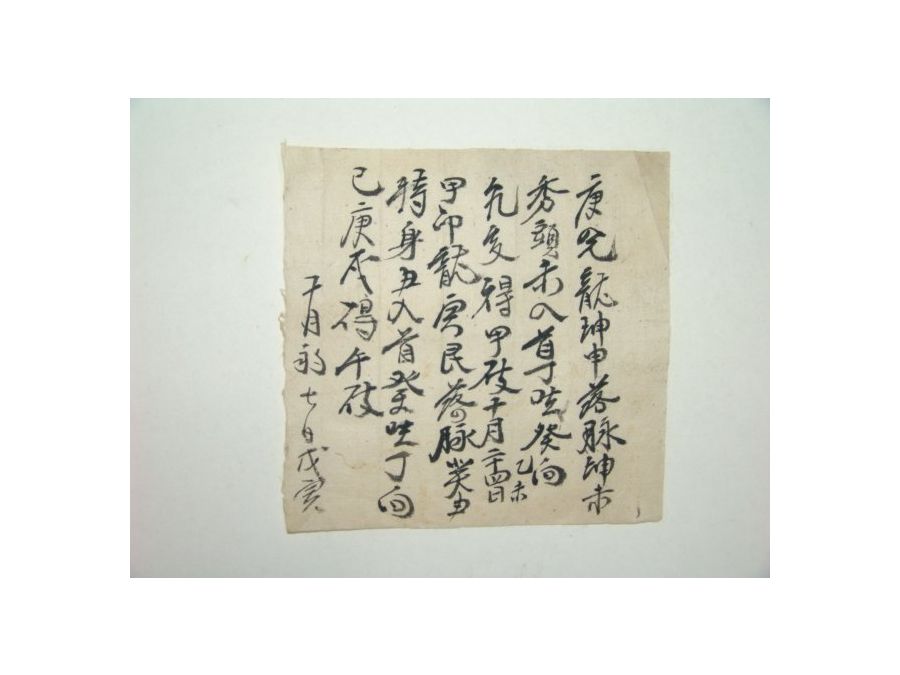 庚兌龍坤申落脉坤未
秀頭未入首丁坐癸向
艮得甲破十月二十四日乙未
甲卯龍寅艮落脉癸丑
轉身丑入首癸坐丁向
巳庚戌得午破
十月初七日戊寅